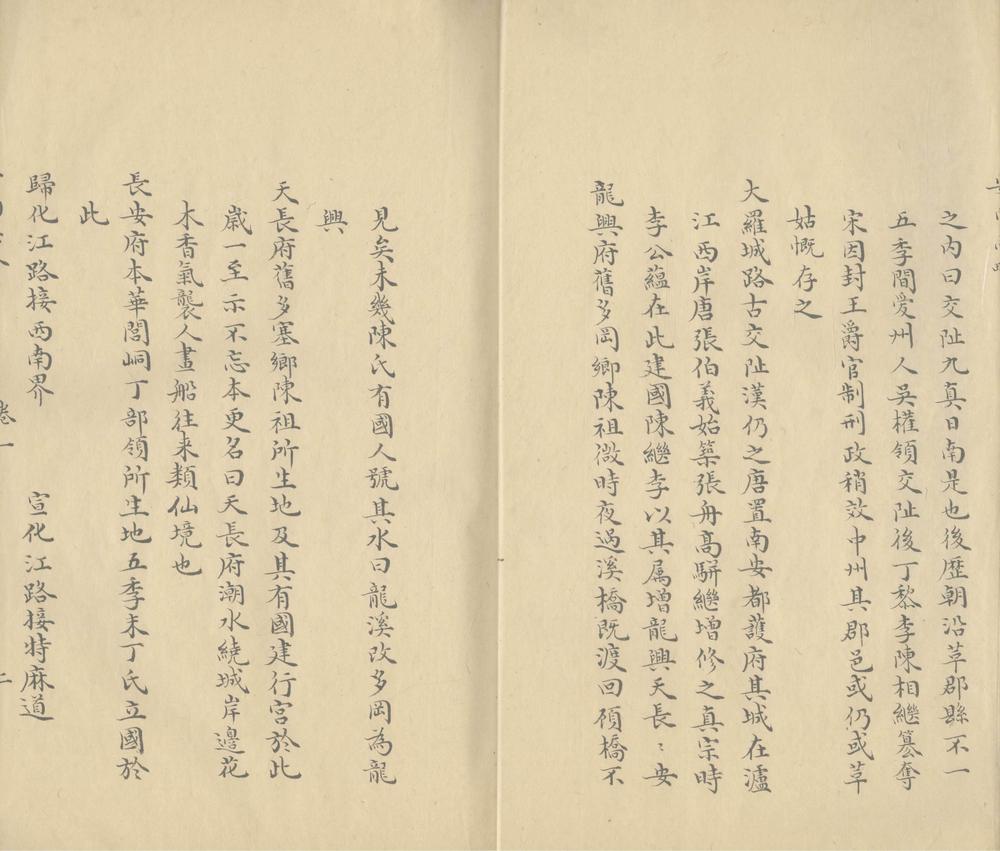 之內曰交阯九真日南是也後歷朝沿革郡縣不一
五季間愛州人吳權領交阯後丁黎李陳相繼篡奪
宋因封王爵官制刑政稍效中州其郡邑或仍或革
姑慨存之
大羅城路古交阯漢仍之唐置南安都護府其城在瀘
江西岸唐張伯義始築張舟高駢繼增修之真宗時
李公蘊在此建國陳繼李以其属增龍興天長〻安
龍興府舊多岡鄉陳祖微時夜過溪橋既渡回頋橋不
見矣未幾陳氏有國人號其水曰龍溪改多岡為龍
興
天長府舊多塞鄉陳祖所生地及其有國建行宮於此
歳一至示不忘本更名曰天長府潮水繞城岸邊花
木香氣襲人畫船往来類仙境也
長安府本華閭峒丁部領所生地五季末丁氏立國於
此
歸化江路接西南界 宣化江路接特麻道
卷一